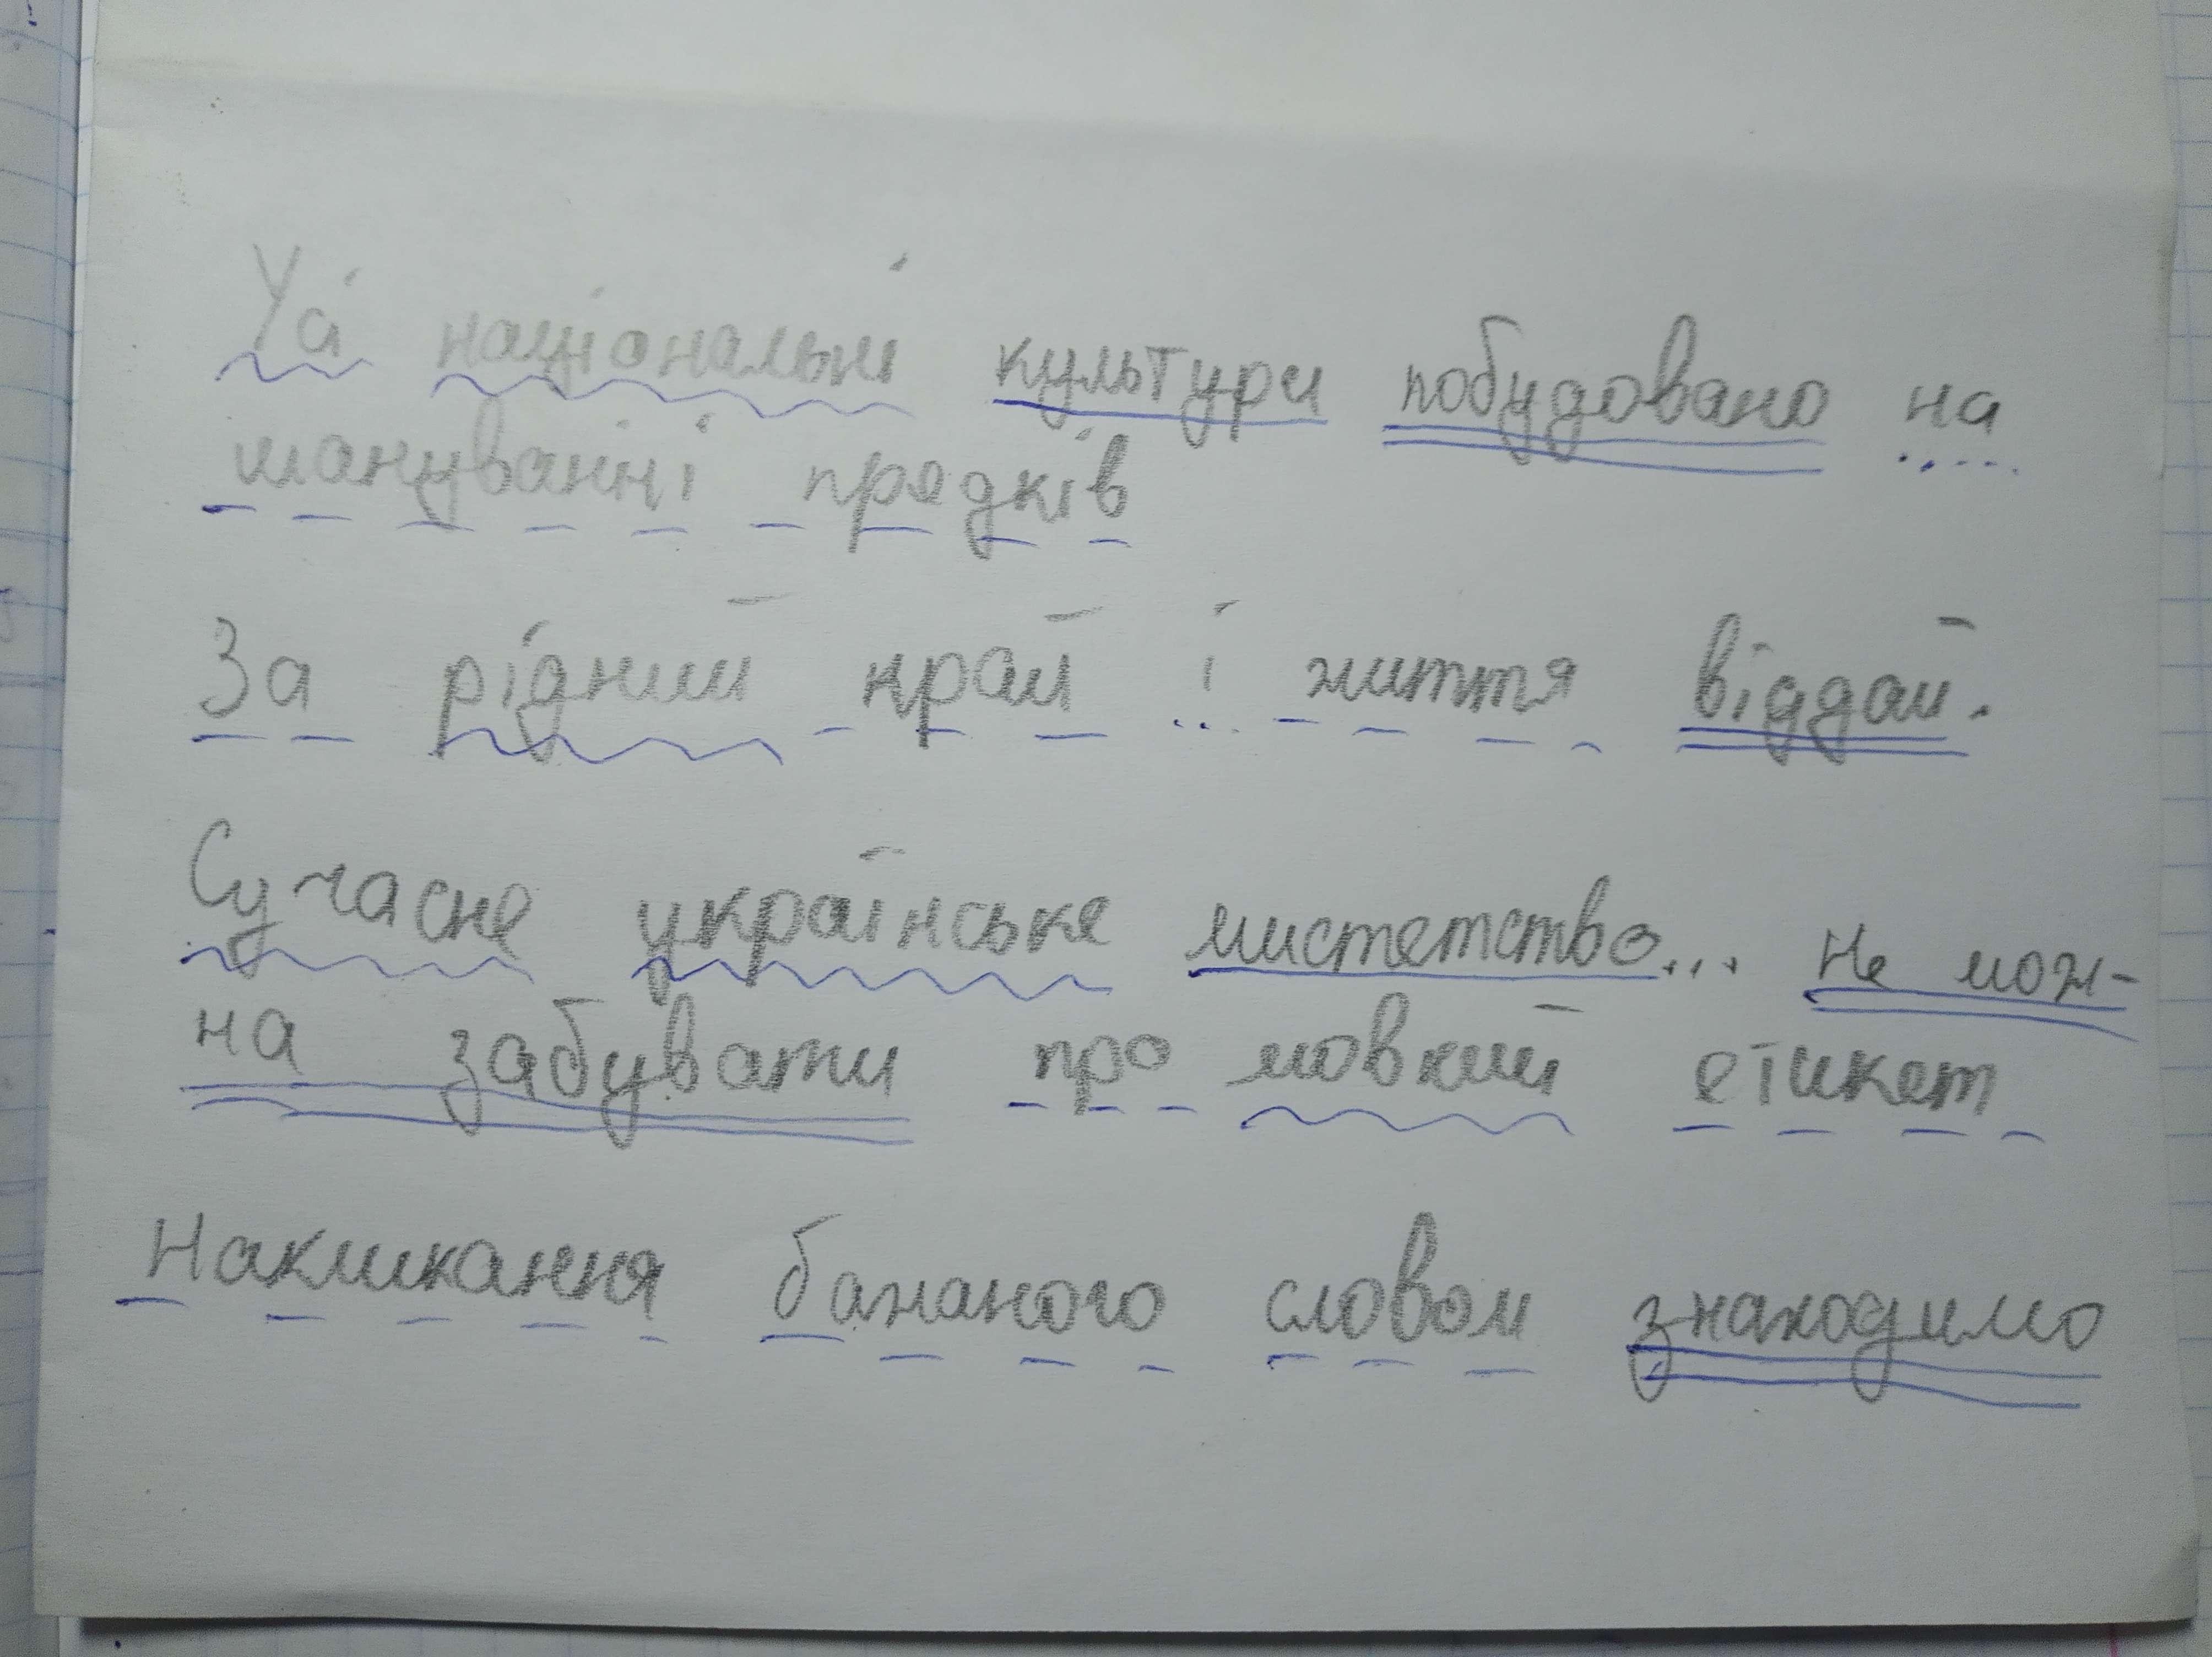 Усі національні культури побудовано на
шануванні предків
За рідний край і життя віддай.
Сучасне українське мистетство... Не мож-
на забувати про мовний етикет
Накликання бажаного словом знаходимо